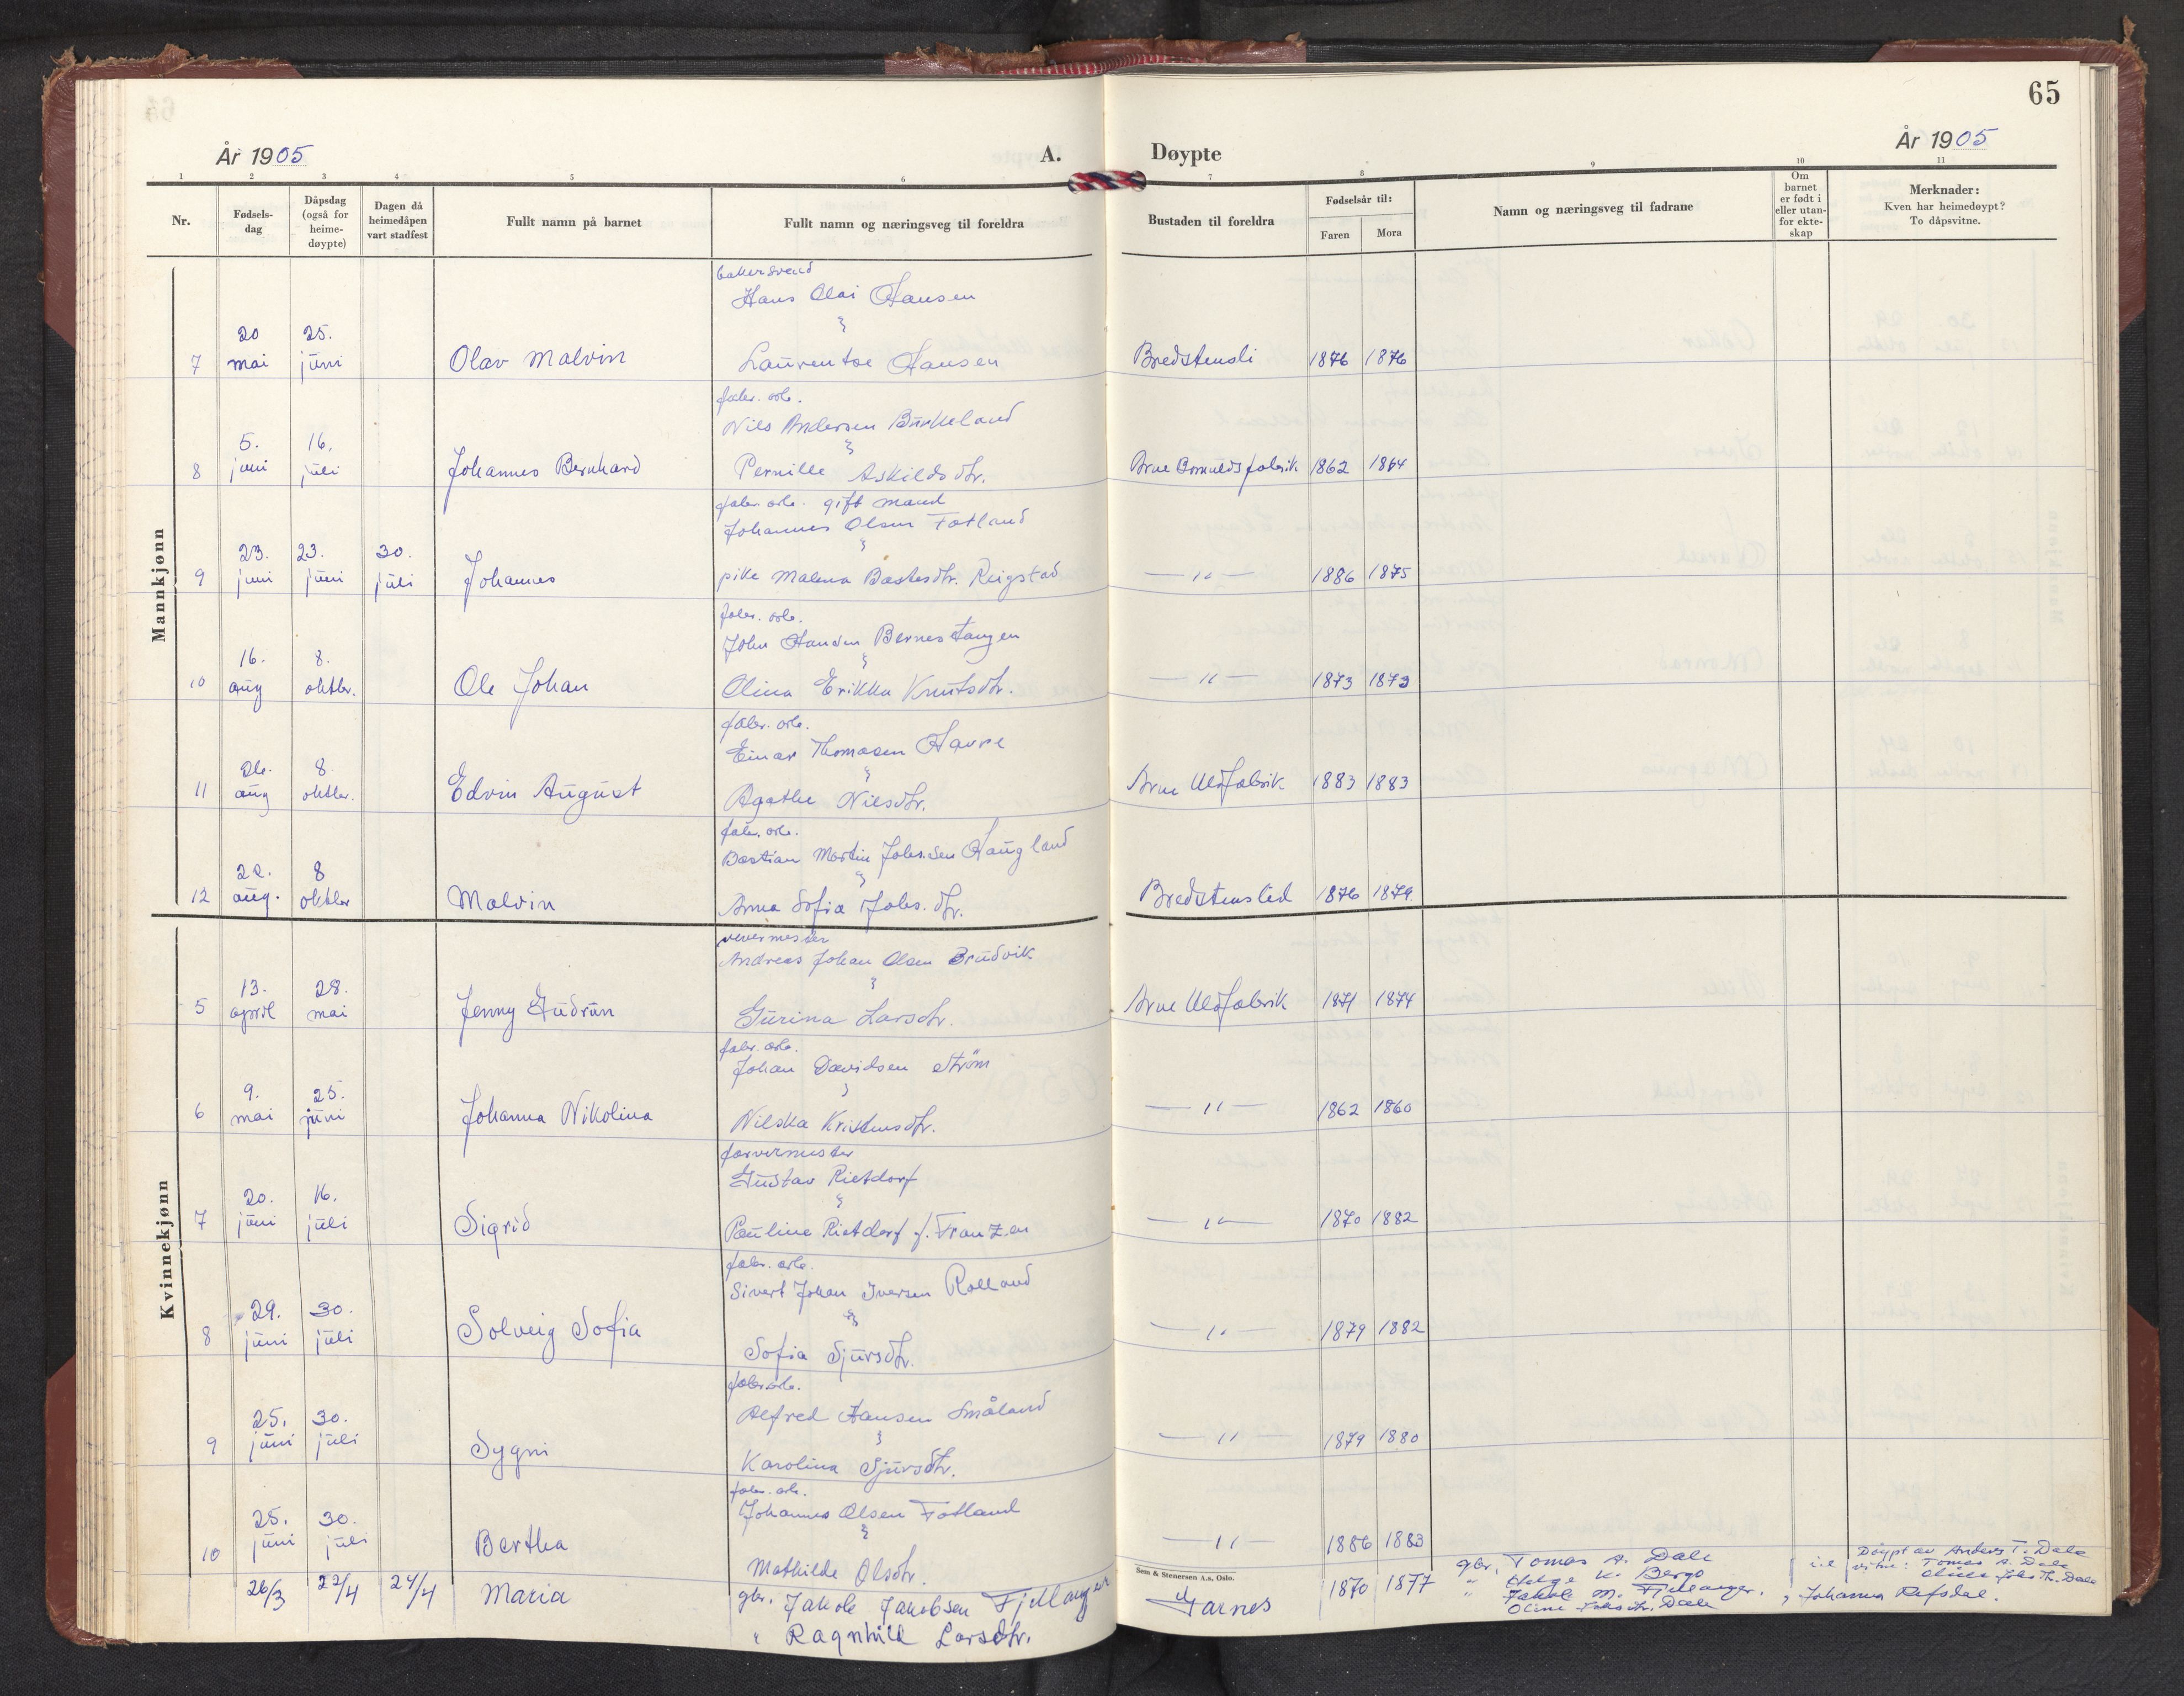 65
År 1905
A.
Døypte
År 1905
1 2 3 4 5 6 7 8 9 10 11
Nr.
Fødsels-
dag
Dåpsdag
(også for
heime-
døypte)
Dagen då
heimedåpen
vart stadfest
Fullt namn på barnet
Fullt namn og næringsveg til foreldra
Bustaden til foreldra
Fødselsår til:
Faren Mora
Namn og næringsveg til fadrane
Om
barnet
er født i
eller utan-
for ekte-
skap
Merknader:
Kven har heimedøypt?
To dåpsvitne.
Mannkjønn
bakersvend
Hans Olai Hansen
20 25.
7 mai juni Olav Malvin Laurentse Hansen Bredstensli 1876 1876
fabr. arb.
Nils Andersen Birkeland
5. 16.
8 juni juli Johannes Bernhard Pernille Askildsdtr. Arne Bomuldsfabrik 1862 1864
fabr. arb. gift mand
Johannes Olsen Fotland
23. 23. 30.
9 juni juni juli Johannes pike Malena Bastesdtr. Reigstad — " — 1886 1875
fabr. arb.
John Hansen Bernestangen
16. 8.
10 aug oktbr. Ole Johan Olina Erikka Knutsdtr. — " — 1873 1873
fabr. arb.
Einar Thomasen Havre
26. 8.
11 aug oktbr. Edvin August Agathe Nilsdtr. Arne Uldfabrik 1883 1883
fabr. arb.
Bastian Martin Johs.sen Haugland
22. 8
12 aug. oktbr Malvin Anna Sofia Johs. dtr. Bredstensled 1876 1879
Kvinnekjønn
vevermester
Andreas Johan Olsen Brudvik
13. 28.
5 april mai Jenny Gudrun Gurina Larsdtr. Arne Uldfabrik 1871 1874
fabr. arb.
Johan Davidsen Strøm
9. 25.
6 mai juni Johanna Nikolina Nilska Kristensdtr. — " — 1862 1860
farvermester
Gustav Rietdorf
20. 16.
7 juni juli Sigrid Pauline Rietdorf f. Franzen — " — 1870 1882
fabr. arb.
Sivert Johan Iversen Rolland
29. 30.
8 juni juli Solveig Sofia Sofia Sjursdtr. — " — 1879 1882
fabr arb.
Alfred Hansen Småland
25. 30.
9 juni juli Sygni Karolina Sjursdtr. — " — 1879 1880
fabr. arb.
Johannes Olsen Fotland
25. 30.
10 juni juli Bertha Mathilde Olsdtr. — " — 1886 1883
Sem & Stenersen A.s, Oslo.
26/3 22/4 24/4 Maria gbr. Jakob Jakobsen Fjellanger
" Ragnhild Larsdtr.
Garnes 1870 1877
gbr. Tomas A. Dale
" Helge K. Bergo
" Jakob M. Fjellanger.
Oline Johs.dtr. Dale
, Johanna Refsdal.
Døypt av Anders T. Dale
vitne: Tomas A. Dale
Oline Johs Th. Dale